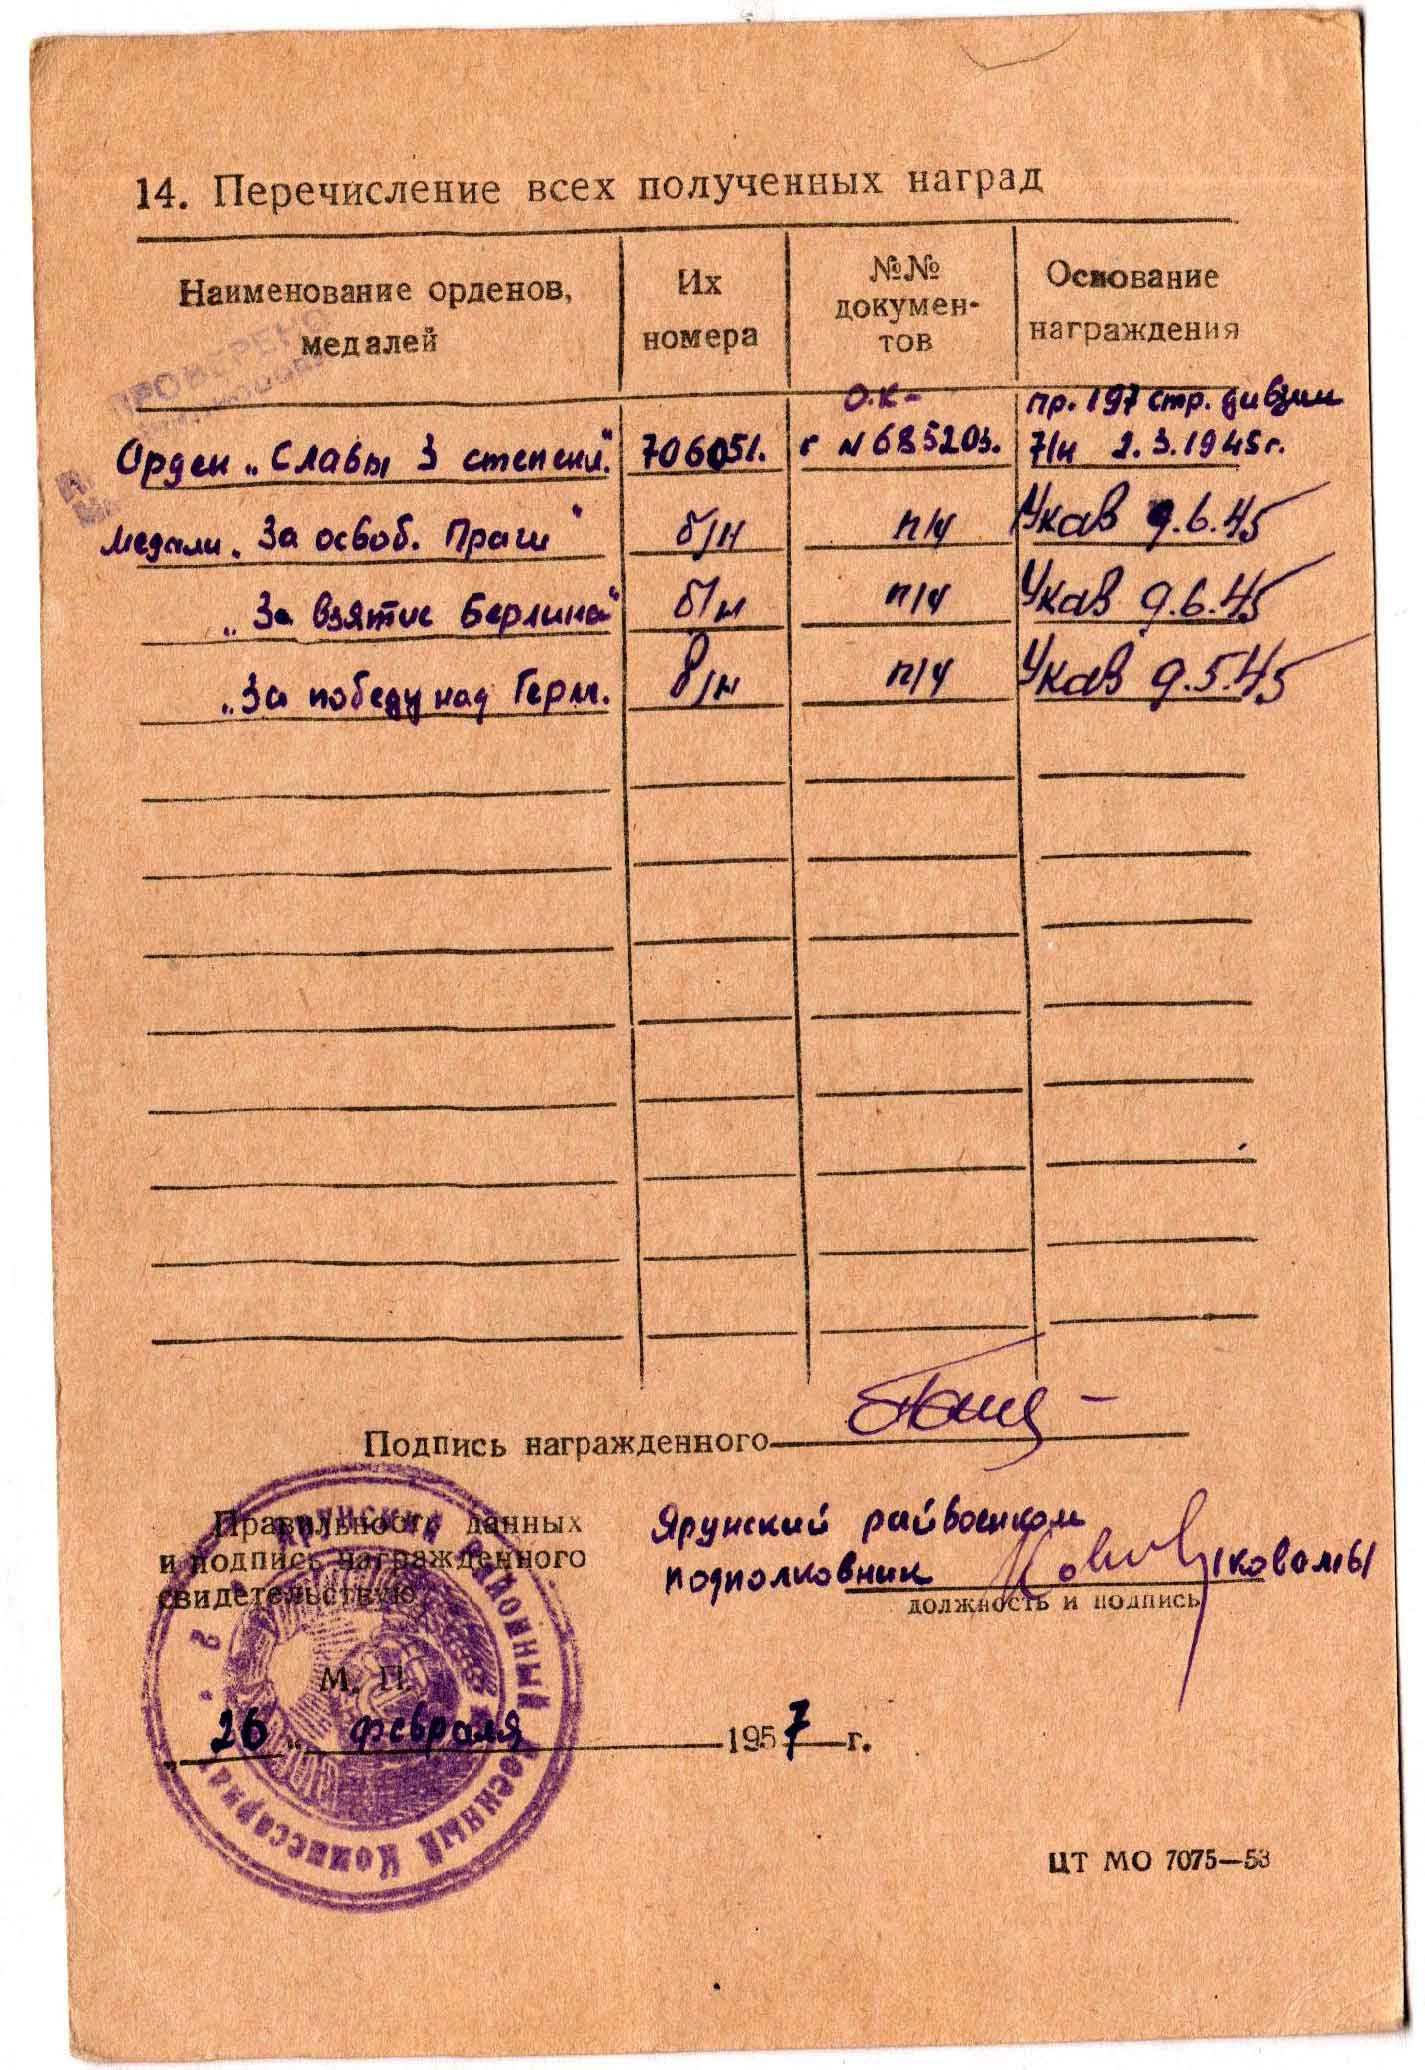 14. Перечисление всех полученных наград
Наименование орденов,
медалей
Их
номера
№№
докумен-
тов
Основание
награждения
ПРОВЕРЕНО
Орден „Славы 3 степени"
706051.
О.К-
г N 685203.
пр. 197 стр. дивзии
7/н 2.3.1945г.
Медали „За освоб. Праги"
б/н
п/ч
Указ 9.6.45
„За взятие Берлина"
б/н
п/ч
Указ 9.6.45
„За победу над Герм.
б/н
п/ч
Указ 9.5.45
Подпись награжденного
Правильность данных
и подпись награжденного
свидетельствую
Ярунский райвоенком
подполковник
должность и подпись
М. П.
„26" февраля 1957 г.
Ярунский Районный Военный Комиссариат
ЦТ МО 7075—53